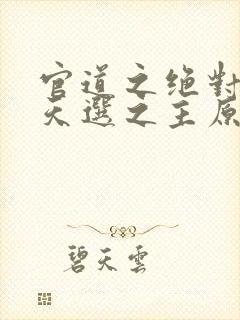 官道之绝對
天選之主原
碧天雲